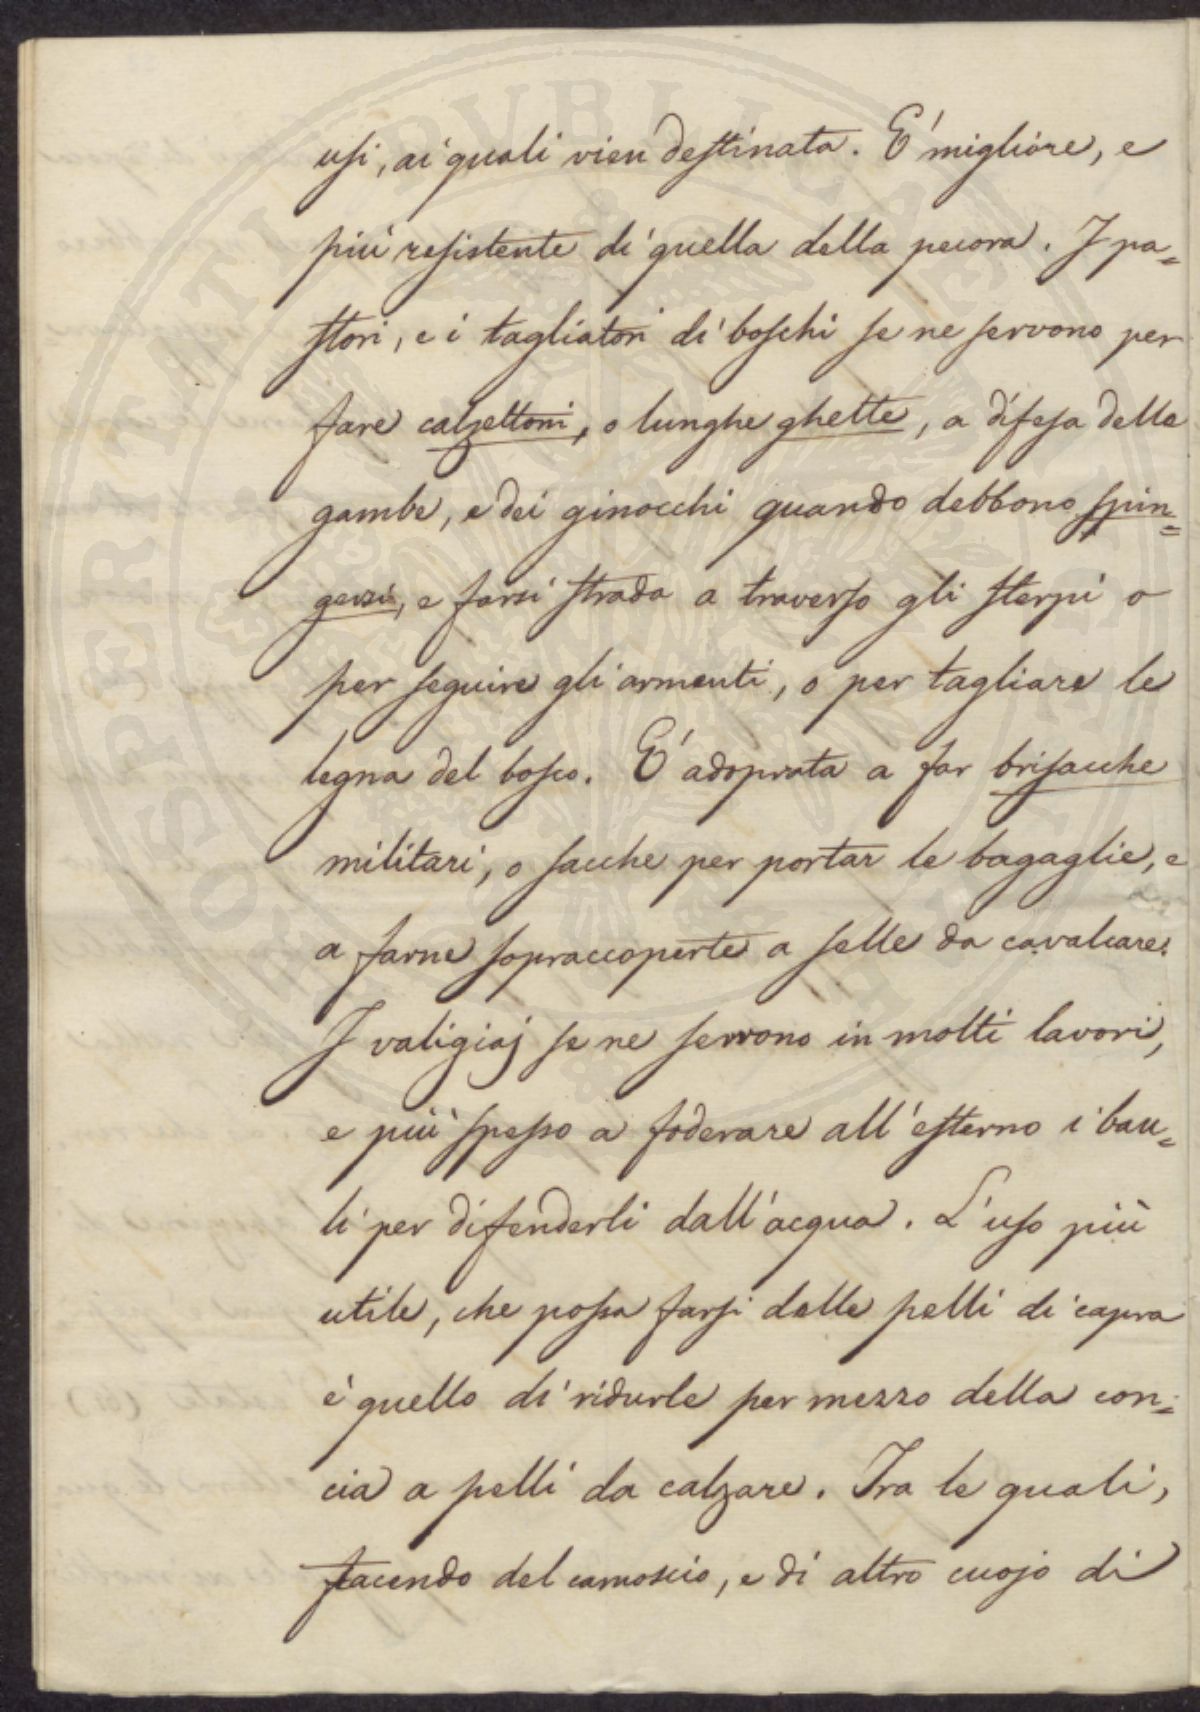 usi, ai quali vien destinata. É migliore, e
più resistente di quella della pecora. I pa=
stori, e i tagliatori di boschi se ne servono per
fare calzettoni, o lunghe ghette, a difesa delle
gambe, e dei ginocchi quando debbono spin=
gersi, e farsi strada a traverso gli sterpi o
per seguire gli armenti, o per tagliare le
legna del bosco. É adoprata a far brisacche
militari, o sacche per portar le bagaglie, e
a farne sopraccoperte a selle da cavalcare.
I valigiaj se ne servono in molti lavori,
e più spesso a foderare all'esterno i bau=
li per difenderli dall'acqua. L'uso più
utile, che possa farsi delle pelli di capra
è quello di ridurle per mezzo della con=
cia a pelli da calzare. Tra le quali,
facendo del camoscio, e di altro cuojo di
PROSPERITATI PUBLICAE